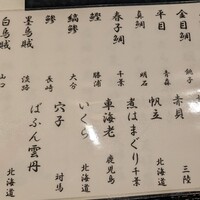 金目鯛 銚子
平目 青森
真鯛 明石
春子鯛 千葉
鰹 勝浦
縞鯵 大分
鯵 長崎
墨烏賊 淡路
白烏賊 山口
赤貝 三陸
帆立 北海道
煮はまぐり 千葉
車海老 鹿児島
いくら 北海道
穴子 対馬
ばふん雲丹 北海道